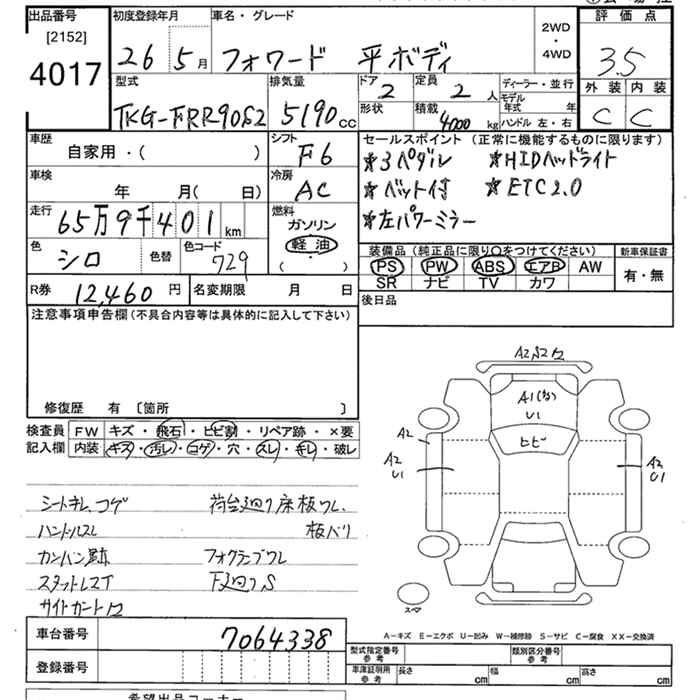 出品番号
[2152]
4017
初度登録年月
26 5月
車名・グレード
フォワード 平ボディ
2WD
・
4WD
評価点
3.5
外装 内装
C C
型式
TKG-FRR90S2
排気量
5190cc
ドア
2
定員
2人
形状
積載
4000kg
ディーラー・並行
モデル年式 年
ハンドル 左・右
車歴
自家用・( )
シフト
F6
車検
年 月( 日)
冷房
AC
走行
65万9千401km
燃料
ガソリン
軽油
( )
色
シロ
色替
色コード
729
R券 12,460円
名変期限 月 日
セールスポイント (正常に機能するものに限ります)
★3ペダル ★HIDヘッドライト
★ベット付 ★ETC2.0
★左パワーミラー
装備品 (純正品に限り○をつけてください)
PS PW ABS エアB AW
SR ナビ TV カワ
新車保証書
有・無
後日品
注意事項申告欄(不具合内容等は具体的に記入して下さい)
修復歴 有 〔箇所 〕
検査員記入欄
FW キズ・飛石・ヒビ割・リペア跡・×要
内装 キズ・汚レ・コゲ・穴・スレ・キレ・破レ
シートキレ、コゲ
ハンドルスレ
カンバン跡
スタットレスT
サイドガードW
荷台廻り床板ワレ
板バリ
フォグランプワレ
下廻りS
A2,S2,W2
A1(な)
U1
ヒビ
A2
A2
U1
A2
U1
スマ
A-キズ E-エクボ U-凹み W-補修跡 S-サビ C-腐食 XX-交換済
車台番号 7064338
登録番号
型式指定番号
参考
類別区分番号
参考
車庫証明用
参考
長さ cm
幅 cm
高さ cm
希望出品コーナー